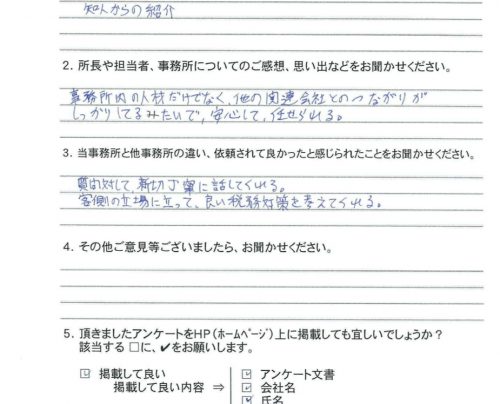 知人からの紹介
2. 所長や担当者、事務所についてのご感想、思い出などをお聞かせください。
事務所内の人材だけでなく、他の関連会社とのつながりが
しっかりしてるみたいで、安心して、任せられる。
3. 当事務所と他事務所の違い、依頼されて良かったと感じられたことをお聞かせください。
質問対して、親切丁寧に話してくれる。
客側の立場に立って、良い税務対策を考えてくれる。
4. その他ご意見等ございましたら、お聞かせください。
5. 頂きましたアンケートをHP(ホームページ)上に掲載しても宜しいでしょうか?
該当する □に、✔をお願いします。
☑ 掲載して良い ☑ アンケート文書
掲載して良い内容 ⇒ ☑ 会社名
☑ 氏名